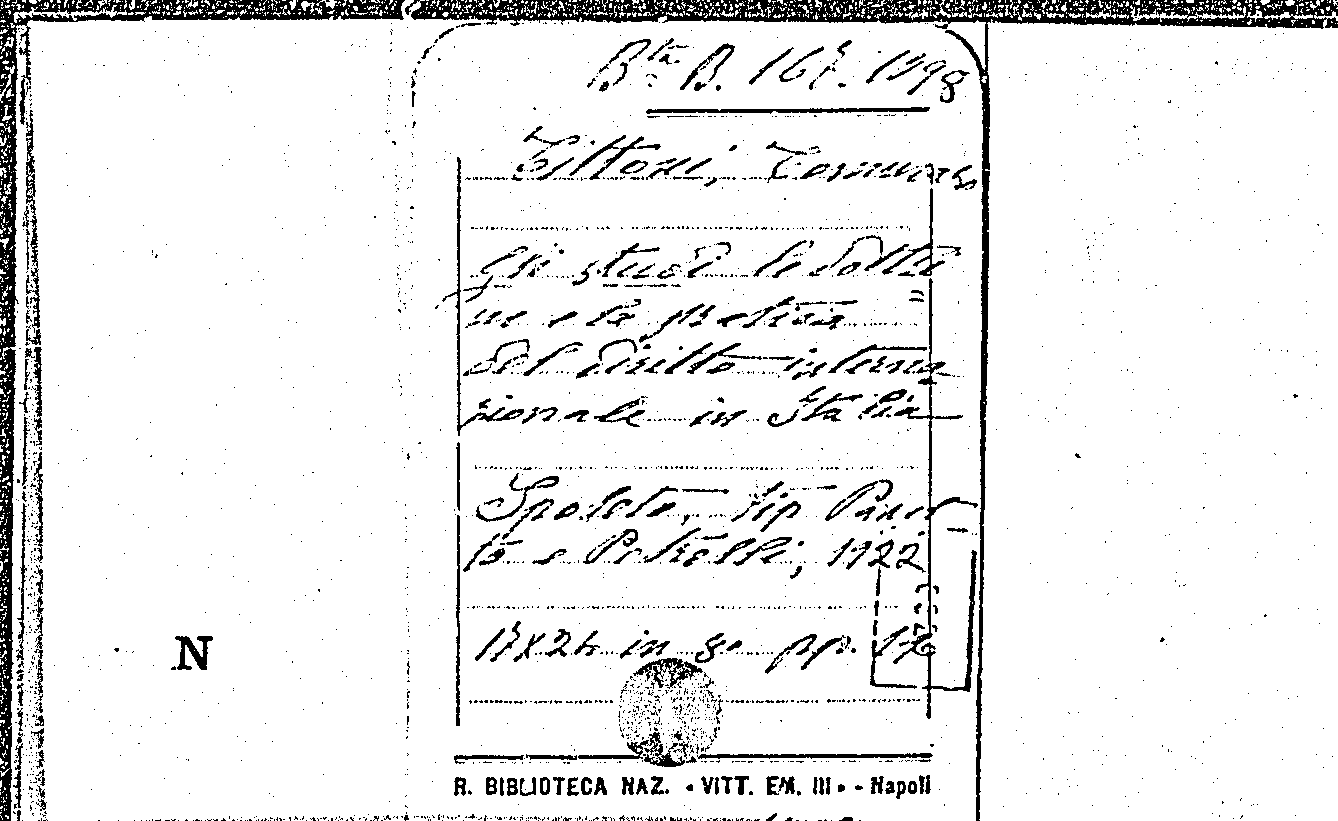 Bta B. 167. 1998
Tittoni, Tommaso
Gli studi le dottri=
ne e la pratica
del diritto interna
zionale in Italia
Spoleto, tip Panet
to e Petrelli, 1922
17x24 in 8o pp.
N
R. BIBLIOTECA NAZ. • VITT. EM. III • - Napoli